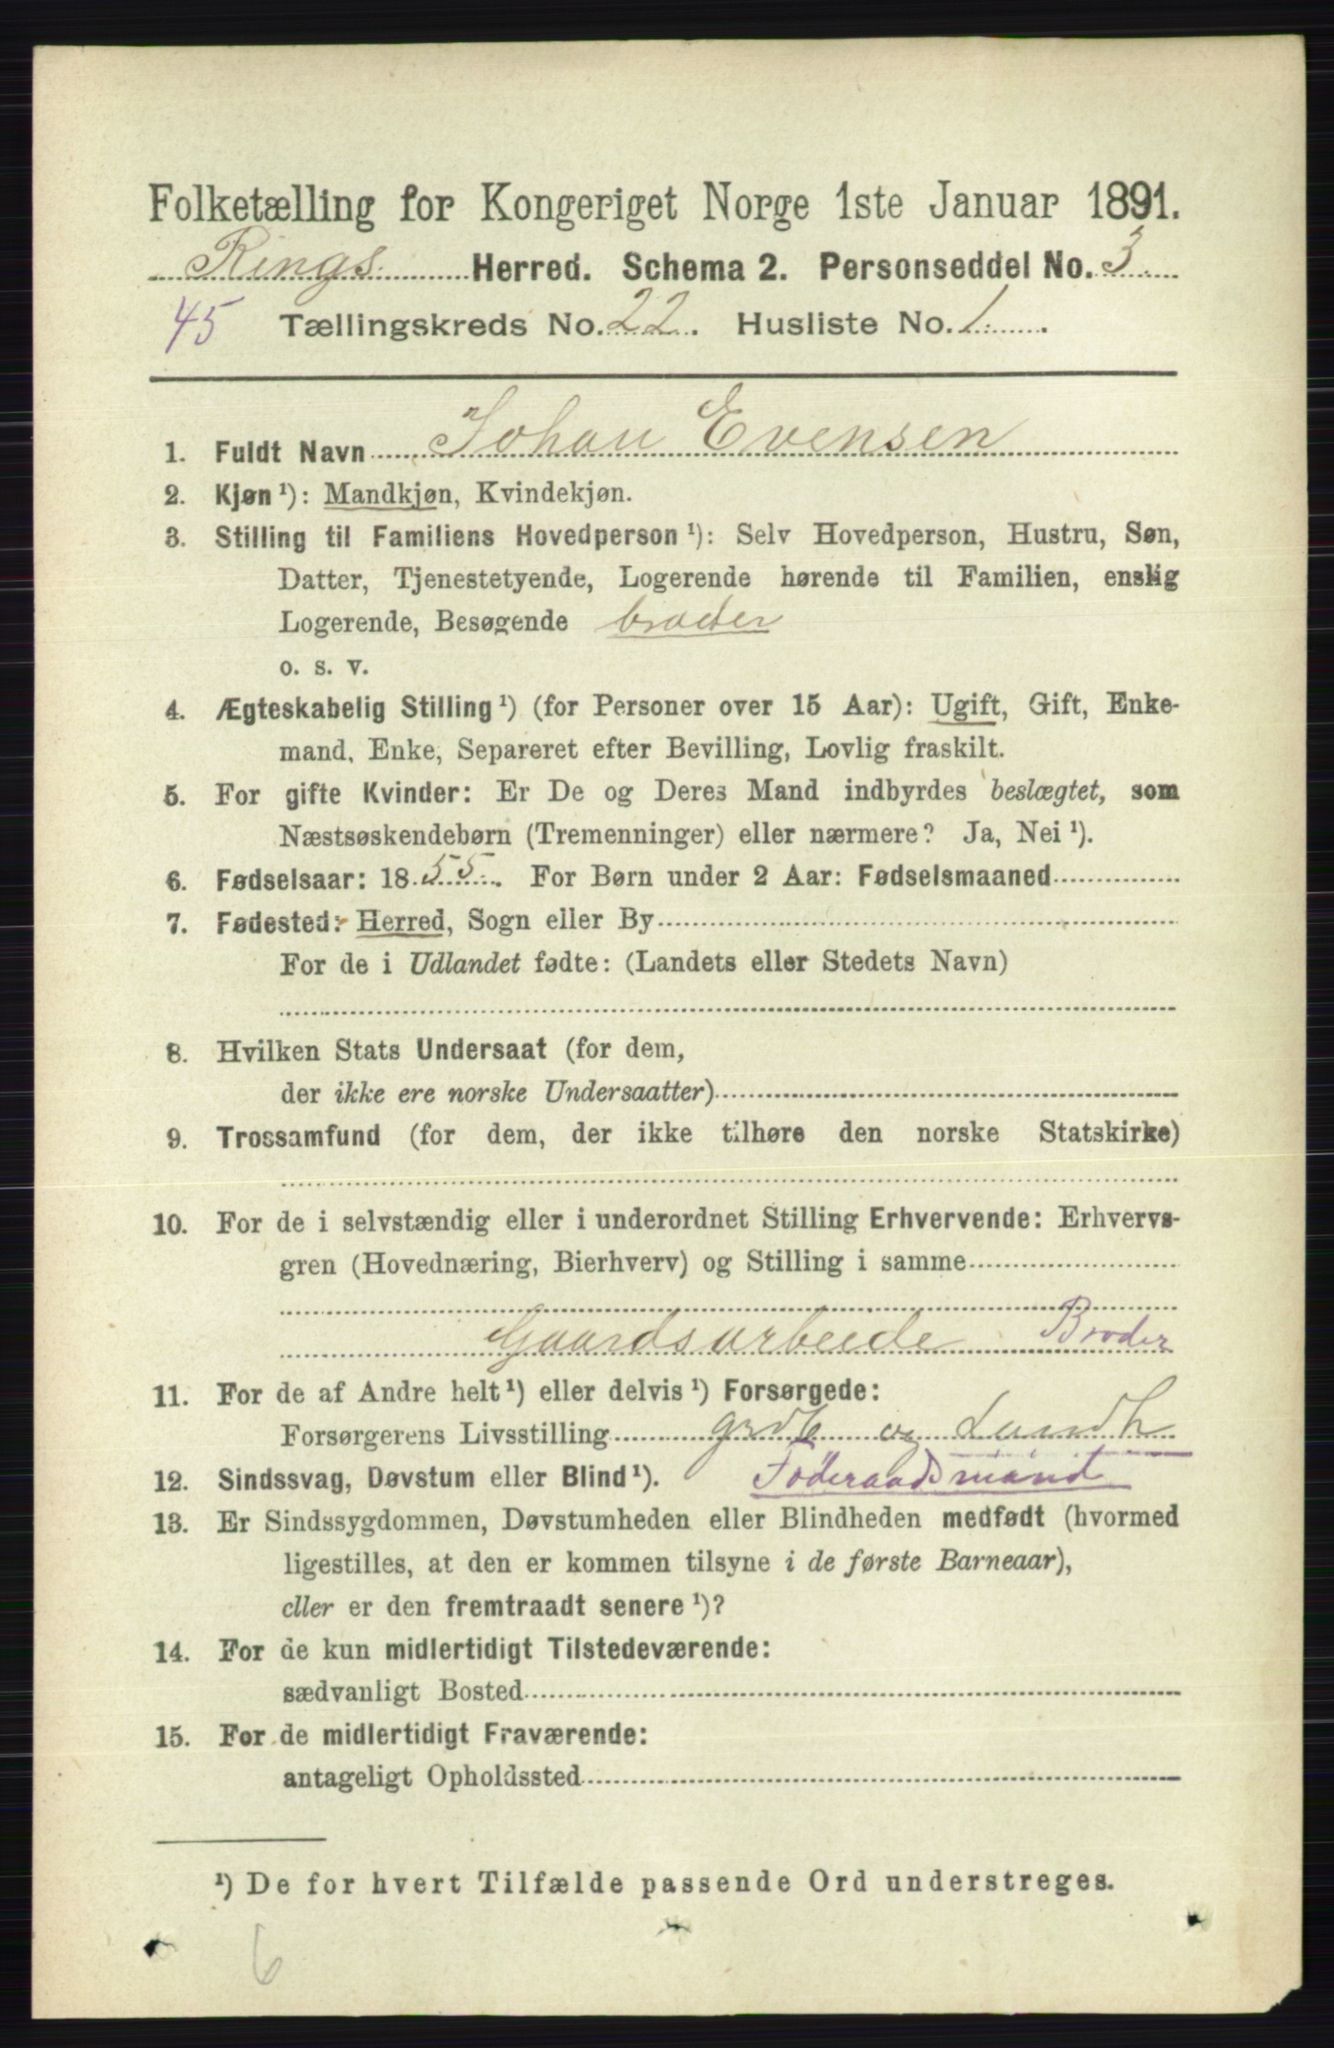 Folketælling for Kongeriget Norge 1ste Januar 1891.
Rings Herred. Schema 2. Personseddel No. 3
45 Tællingskreds No. 22. Husliste No. 1
1. Fuldt Navn Johan Evensen
2. Kjøn ¹): Mandkjøn, Kvindekjøn.
3. Stilling til Familiens Hovedperson ¹): Selv Hovedperson, Hustru, Søn,
Datter, Tjenestetyende, Logerende hørende til Familien, enslig
Logerende, Besøgende broder
o. s. v.
4. Ægteskabelig Stilling ¹) (for Personer over 15 Aar): Ugift, Gift, Enke-
mand, Enke, Separeret efter Bevilling, Lovlig fraskilt.
5. For gifte Kvinder: Er De og Deres Mand indbyrdes beslægtet, som
Næstsøskendebørn (Tremenninger) eller nærmere? Ja, Nei ¹).
6. Fødselsaar: 1855. For Børn under 2 Aar: Fødselsmaaned
7. Fødested: Herred, Sogn eller By
For de i Udlandet fødte: (Landets eller Stedets Navn)
8. Hvilken Stats Undersaat (for dem,
der ikke ere norske Undersaatter)
9. Trossamfund (for dem, der ikke tilhøre den norske Statskirke)
10. For de i selvstændig eller i underordnet Stilling Erhvervende: Erhvervs-
gren (Hovednæring, Bierhverv) og Stilling i samme
Gaardsarbeide Broder
11. For de af Andre helt ¹) eller delvis ¹) Forsørgede:
Forsørgerens Livsstilling grdb og Landh
12. Sindssvag, Døvstum eller Blind ¹). Føderaadsmand
13. Er Sindssygdommen, Døvstumheden eller Blindheden medfødt (hvormed
ligestilles, at den er kommen tilsyne i de første Barneaar),
eller er den fremtraadt senere ¹)?
14. For de kun midlertidigt Tilstedeværende:
sædvanligt Bosted
15. For de midlertidigt Fraværende:
antageligt Opholdssted
¹) De for hvert Tilfælde passende Ord understreges.
6